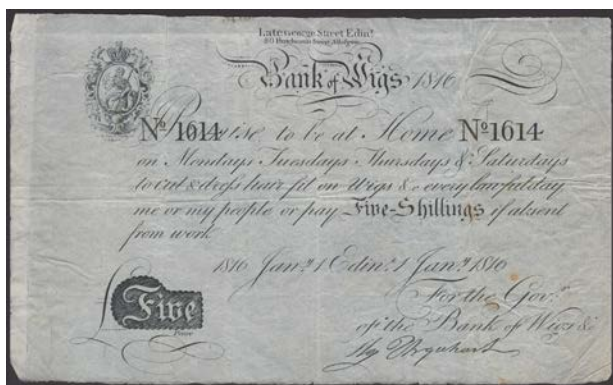 Late George Street Edinr
Bank of Wigs 1816
No 1614 Promise to be at Home No 1614
on Mondays Tuesdays Thursdays & Saturdays
to cut & dress hair fit on Wigs &c every lawful day
me or my people or pay Five Shillings if absent
from work
1816 Jany 1 Edinr 1 Jany 1816
For the Govr
£ Five
of the Bank of Wigs &c
Hy Urquhart